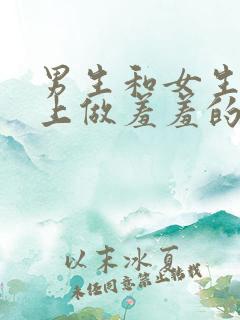 男生和女生
上做羞羞的
以末冰夏
未经同意禁止转载